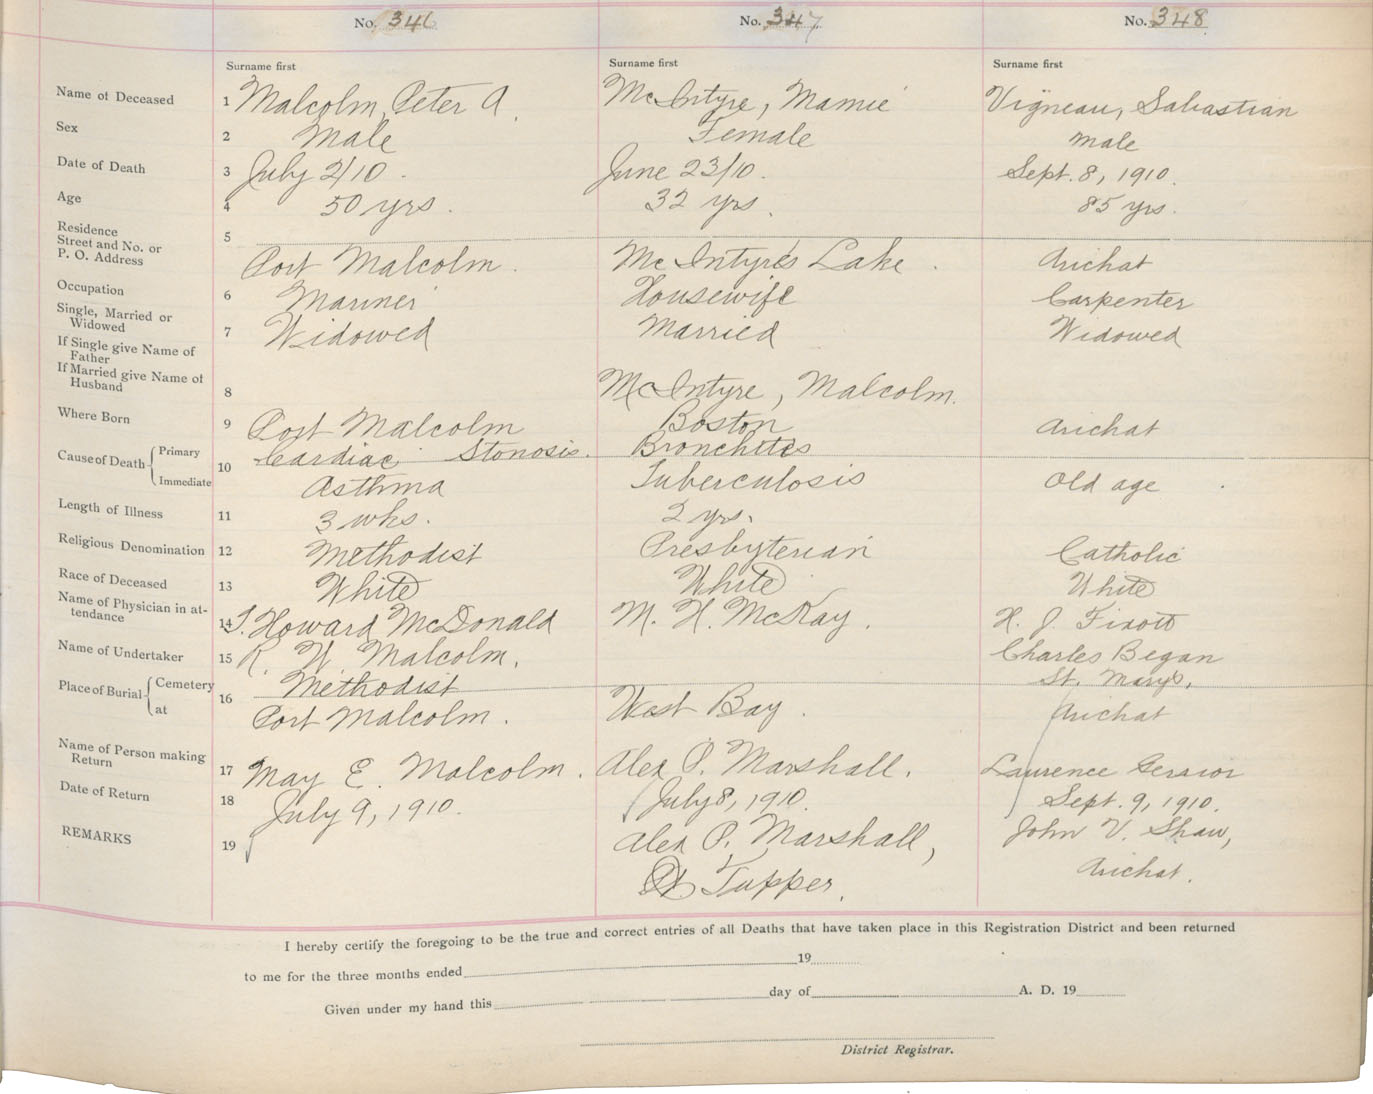 No. 346 No. 347 No. 348
Surname first Surname first Surname first
Name of Deceased 1 Malcolm, Peter A. McIntyre, Mamie Vigneau, Sabastian
Sex 2 Male Female Male
Date of Death 3 July 2/10. June 23/10. Sept. 8, 1910.
Age 4 50 yrs. 32 yrs. 85 yrs.
Residence 5
Street and No. or
P. O. Address Port Malcolm. McIntyre's Lake. Arichat
Occupation 6 Mariner Housewife Carpenter
Single, Married or
Widowed 7 Widowed Married Widowed
If Single give Name of
Father
If Married give Name of
Husband 8 McIntyre, Malcolm.
Where Born 9 Port Malcolm Boston Arichat
Cause of Death Primary 10 Cardiac Stonosis. Bronchites
Immediate Asthma Tuberculosis Old age
Length of Illness 11 3 wks. 2 yrs.
Religious Denomination 12 Methodist Presbyterian Catholic
Race of Deceased 13 White White White
Name of Physician in at-
tendance 14 Howard McDonald M. H. McKay. H. J. Fixott
Name of Undertaker 15 R. W. Malcolm. Charles Began
Place of Burial Cemetery 16 Methodist St. Mary's.
at Port Malcolm. West Bay. Arichat
Name of Person making
Return 17 May E. Malcolm. Alex P. Marshall. Laurence Gersior
Date of Return 18 July 9, 1910. July 8, 1910. Sept. 9, 1910.
REMARKS 19 Alex P. Marshall, John V. Shaw,
Pt Tupper. Arichat.
I hereby certify the foregoing to be the true and correct entries of all Deaths that have taken place in this Registration District and been returned
to me for the three months ended 19
Given under my hand this day of A. D. 19
District Registrar.